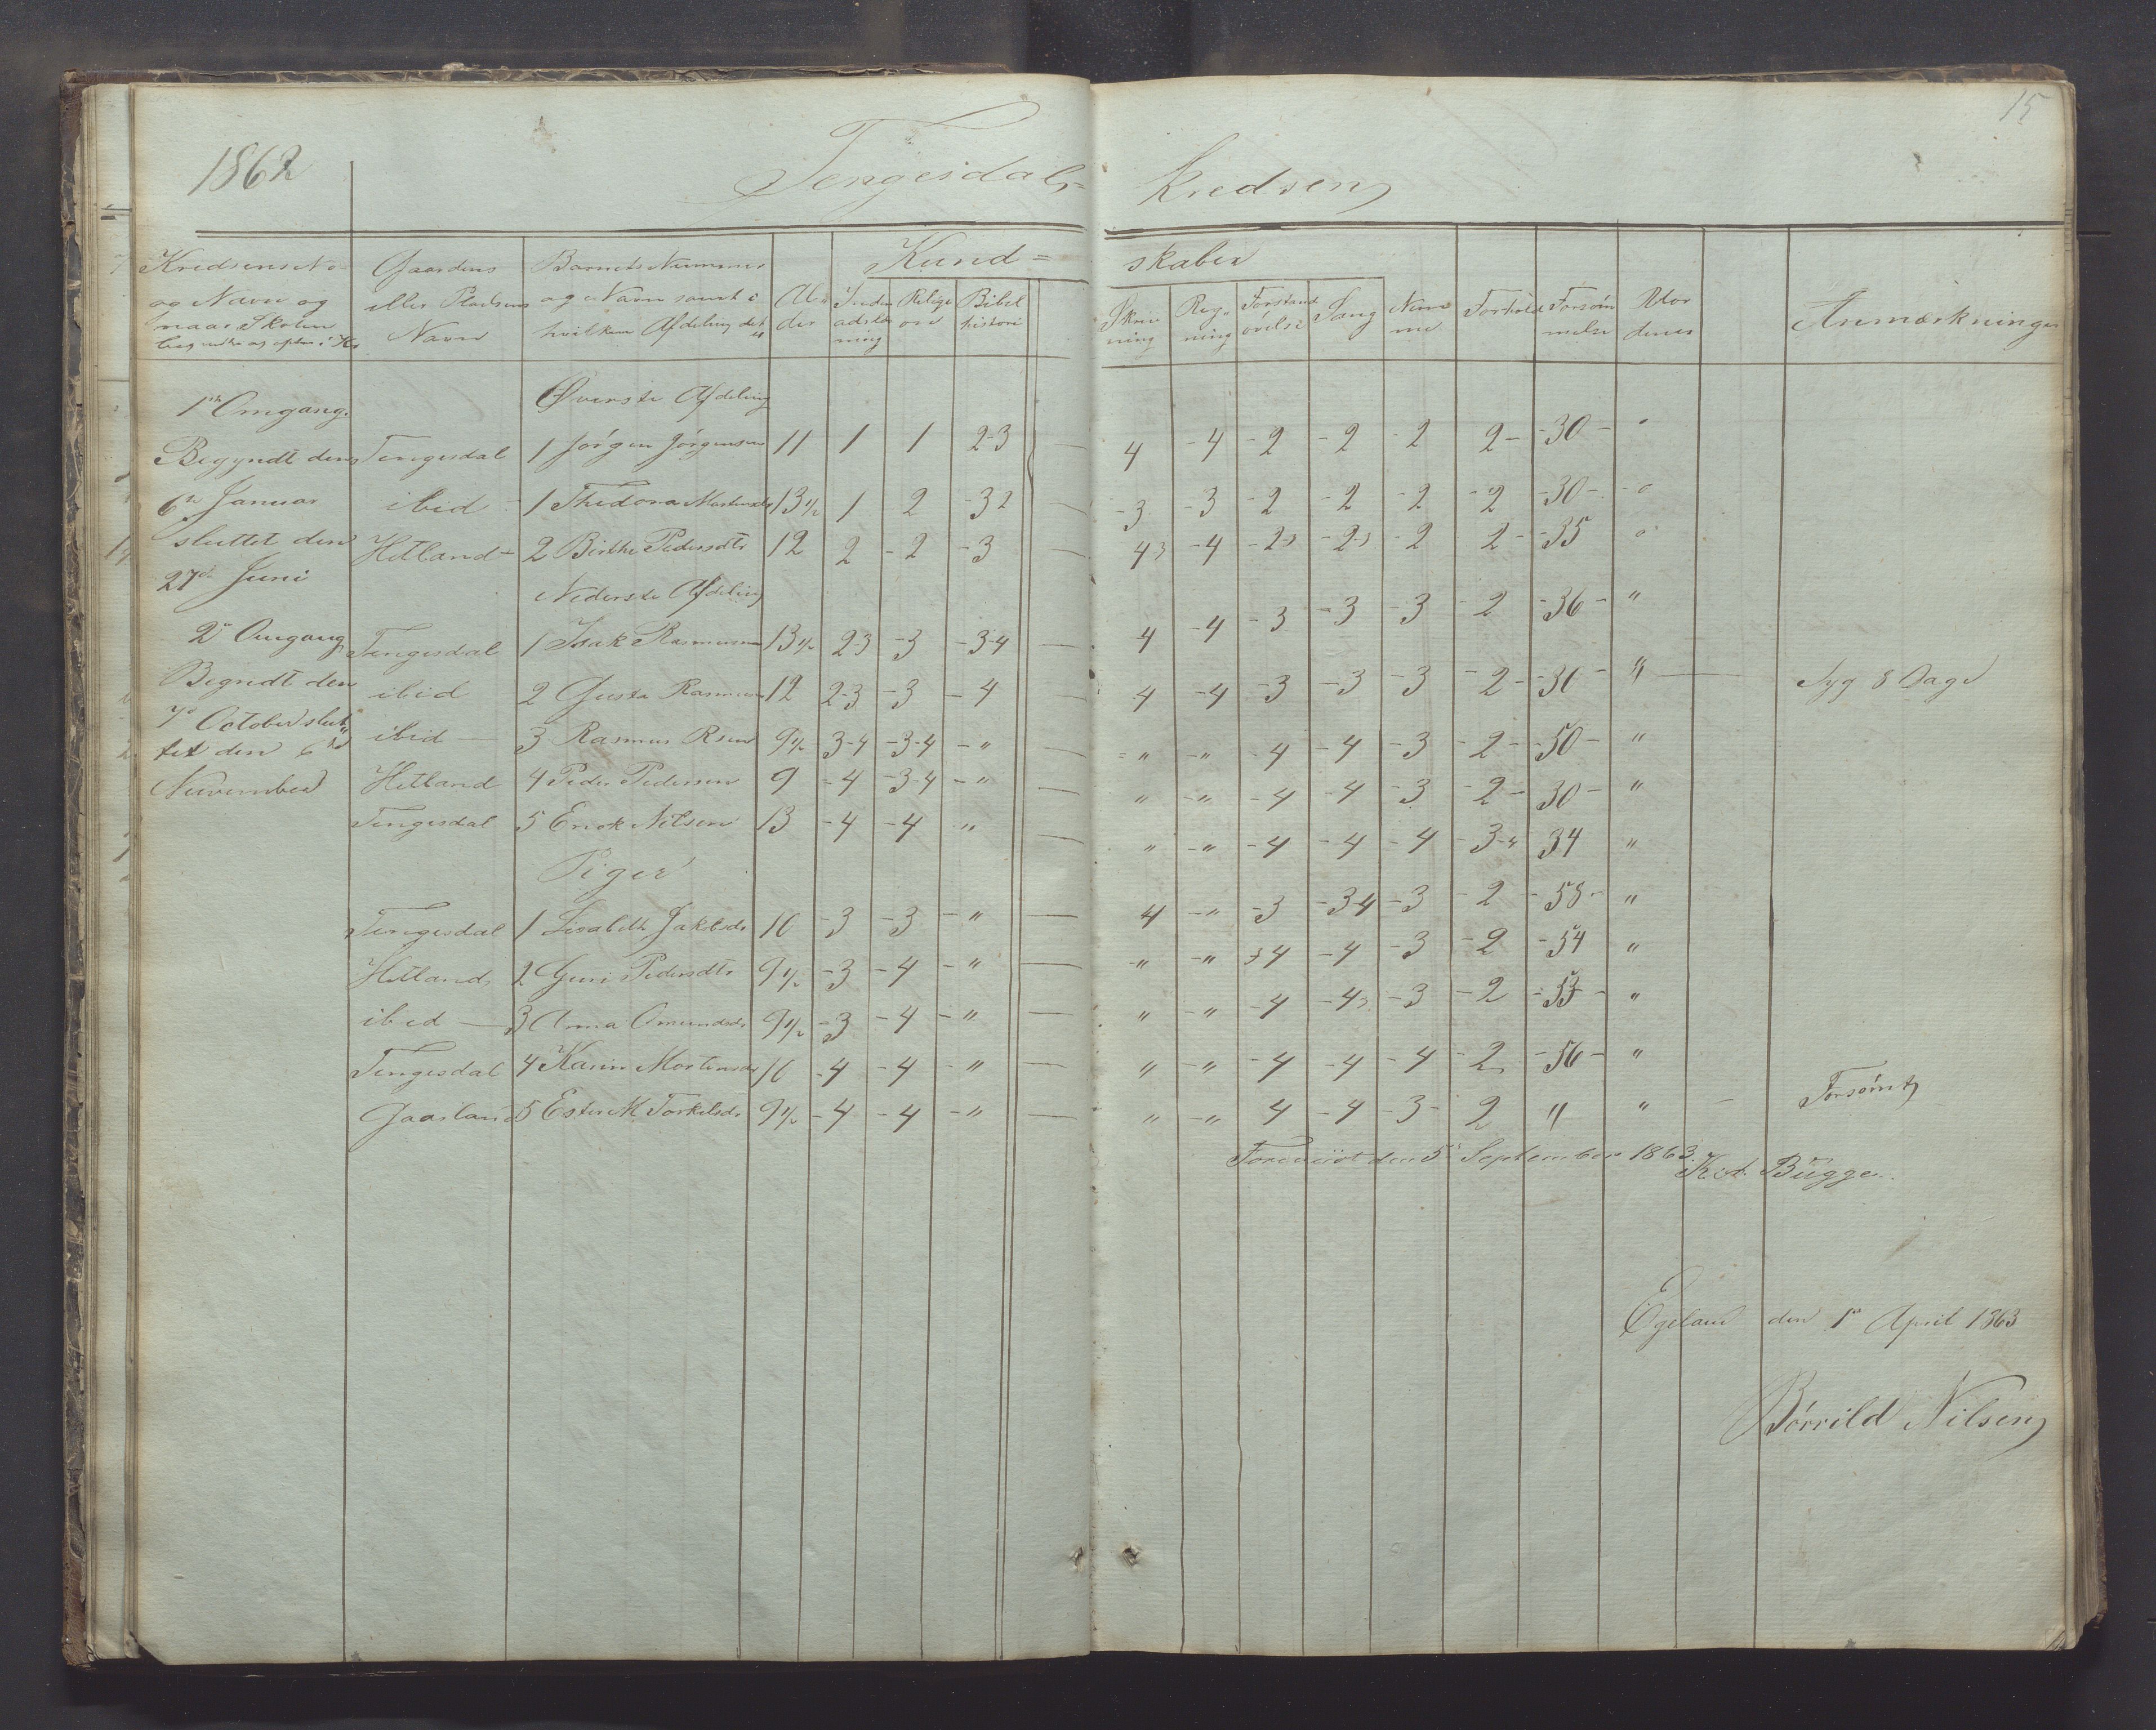 15
1862 Tengesdals= Kredsen
Kund= skaber
Kredsens No og Navn og naar Skolen
Gaardens eller Pladsens Navn
Barnets Nummer og Navn samt i hvilken Afdeling det er
Al- der
Inden adslæs ning
Religi on
Bibel histori
Skriv ning
Reg- ning
Forstand øvelse
Sang
Nem me
Forhold
Forsøm melse
Anmærkninger
Øverste Afdeling
1ste Omgang.
Begyndt den Tengesdal 1 Jörgen Jörgensen 11 1 1 2-3 — 4 -4 -2 -2 -2 2- -30- "
6te Januar ibid - 1 Thedora Mortensdtr 13 1/2 1 2 -32 — -3 -3 -2 -2 -2 -2 -30- "
sluttet den Hetland - 2 Birthe Pedersdtr 12 2 -2 -3 — 43 -4 -23 -23 -2 2- -35 "
27de Juni
Nederste Afdeling
2den Omgang Tengesdal 1 Isak Rasmussen 13 1/2 2-3 -3 -3-4 — 4 -4 -3 -3 -3 -2 -36- "
Begndt den ibid 2 Gusta Rasmusen 12 2-3 -3 -4 4 -4 -3 -3 -3 -2- -30- " — Syg 8 Dage
7de October slut
tet den 6te ibid — 3 Rasmus Rsen 9 1/2 3-4 -3-4 -" — " -" -4 -4 -3 -2- -50- "
November Hetland 4 Peder Pedersen 9 -4 -3-4 -" — " -" -4 -4 -3 -2- 30- "
Tengesdal 5 Enok Nilsen 13 -4 -4 " — " -" -4 -4 -4 -3-4 34 "
Piger
Tengesdal 1 Lisabeth Jakobsdr 10 -3 -3 -" — 4 -" -3 -34 -3 -2 -58- "
Hetland 2 Guri Pedersdtr 9 1/2 -3 -4 -" — -" -" 34 -4 -3 -2 -54 "
ibid — 3 Anna Omundsdr 9 1/2 -3 -4 -" — " -" -4 -43 -3 -2 -53- "
Tengesdal 4 Karin Mortensdr 10 -4 -4 -" — " -" -4 -4 -4 -2 -56- "
Gaasland 5 Ester M Torkelsdr 9 1/2 -4 -4 -" — " -" 4 -4 -3- 2 " " - Forsömt
Foreviist den 5te September 1863. K. A. Bugge.
Egeland den 1ste April 1863
Börrild Nilsen